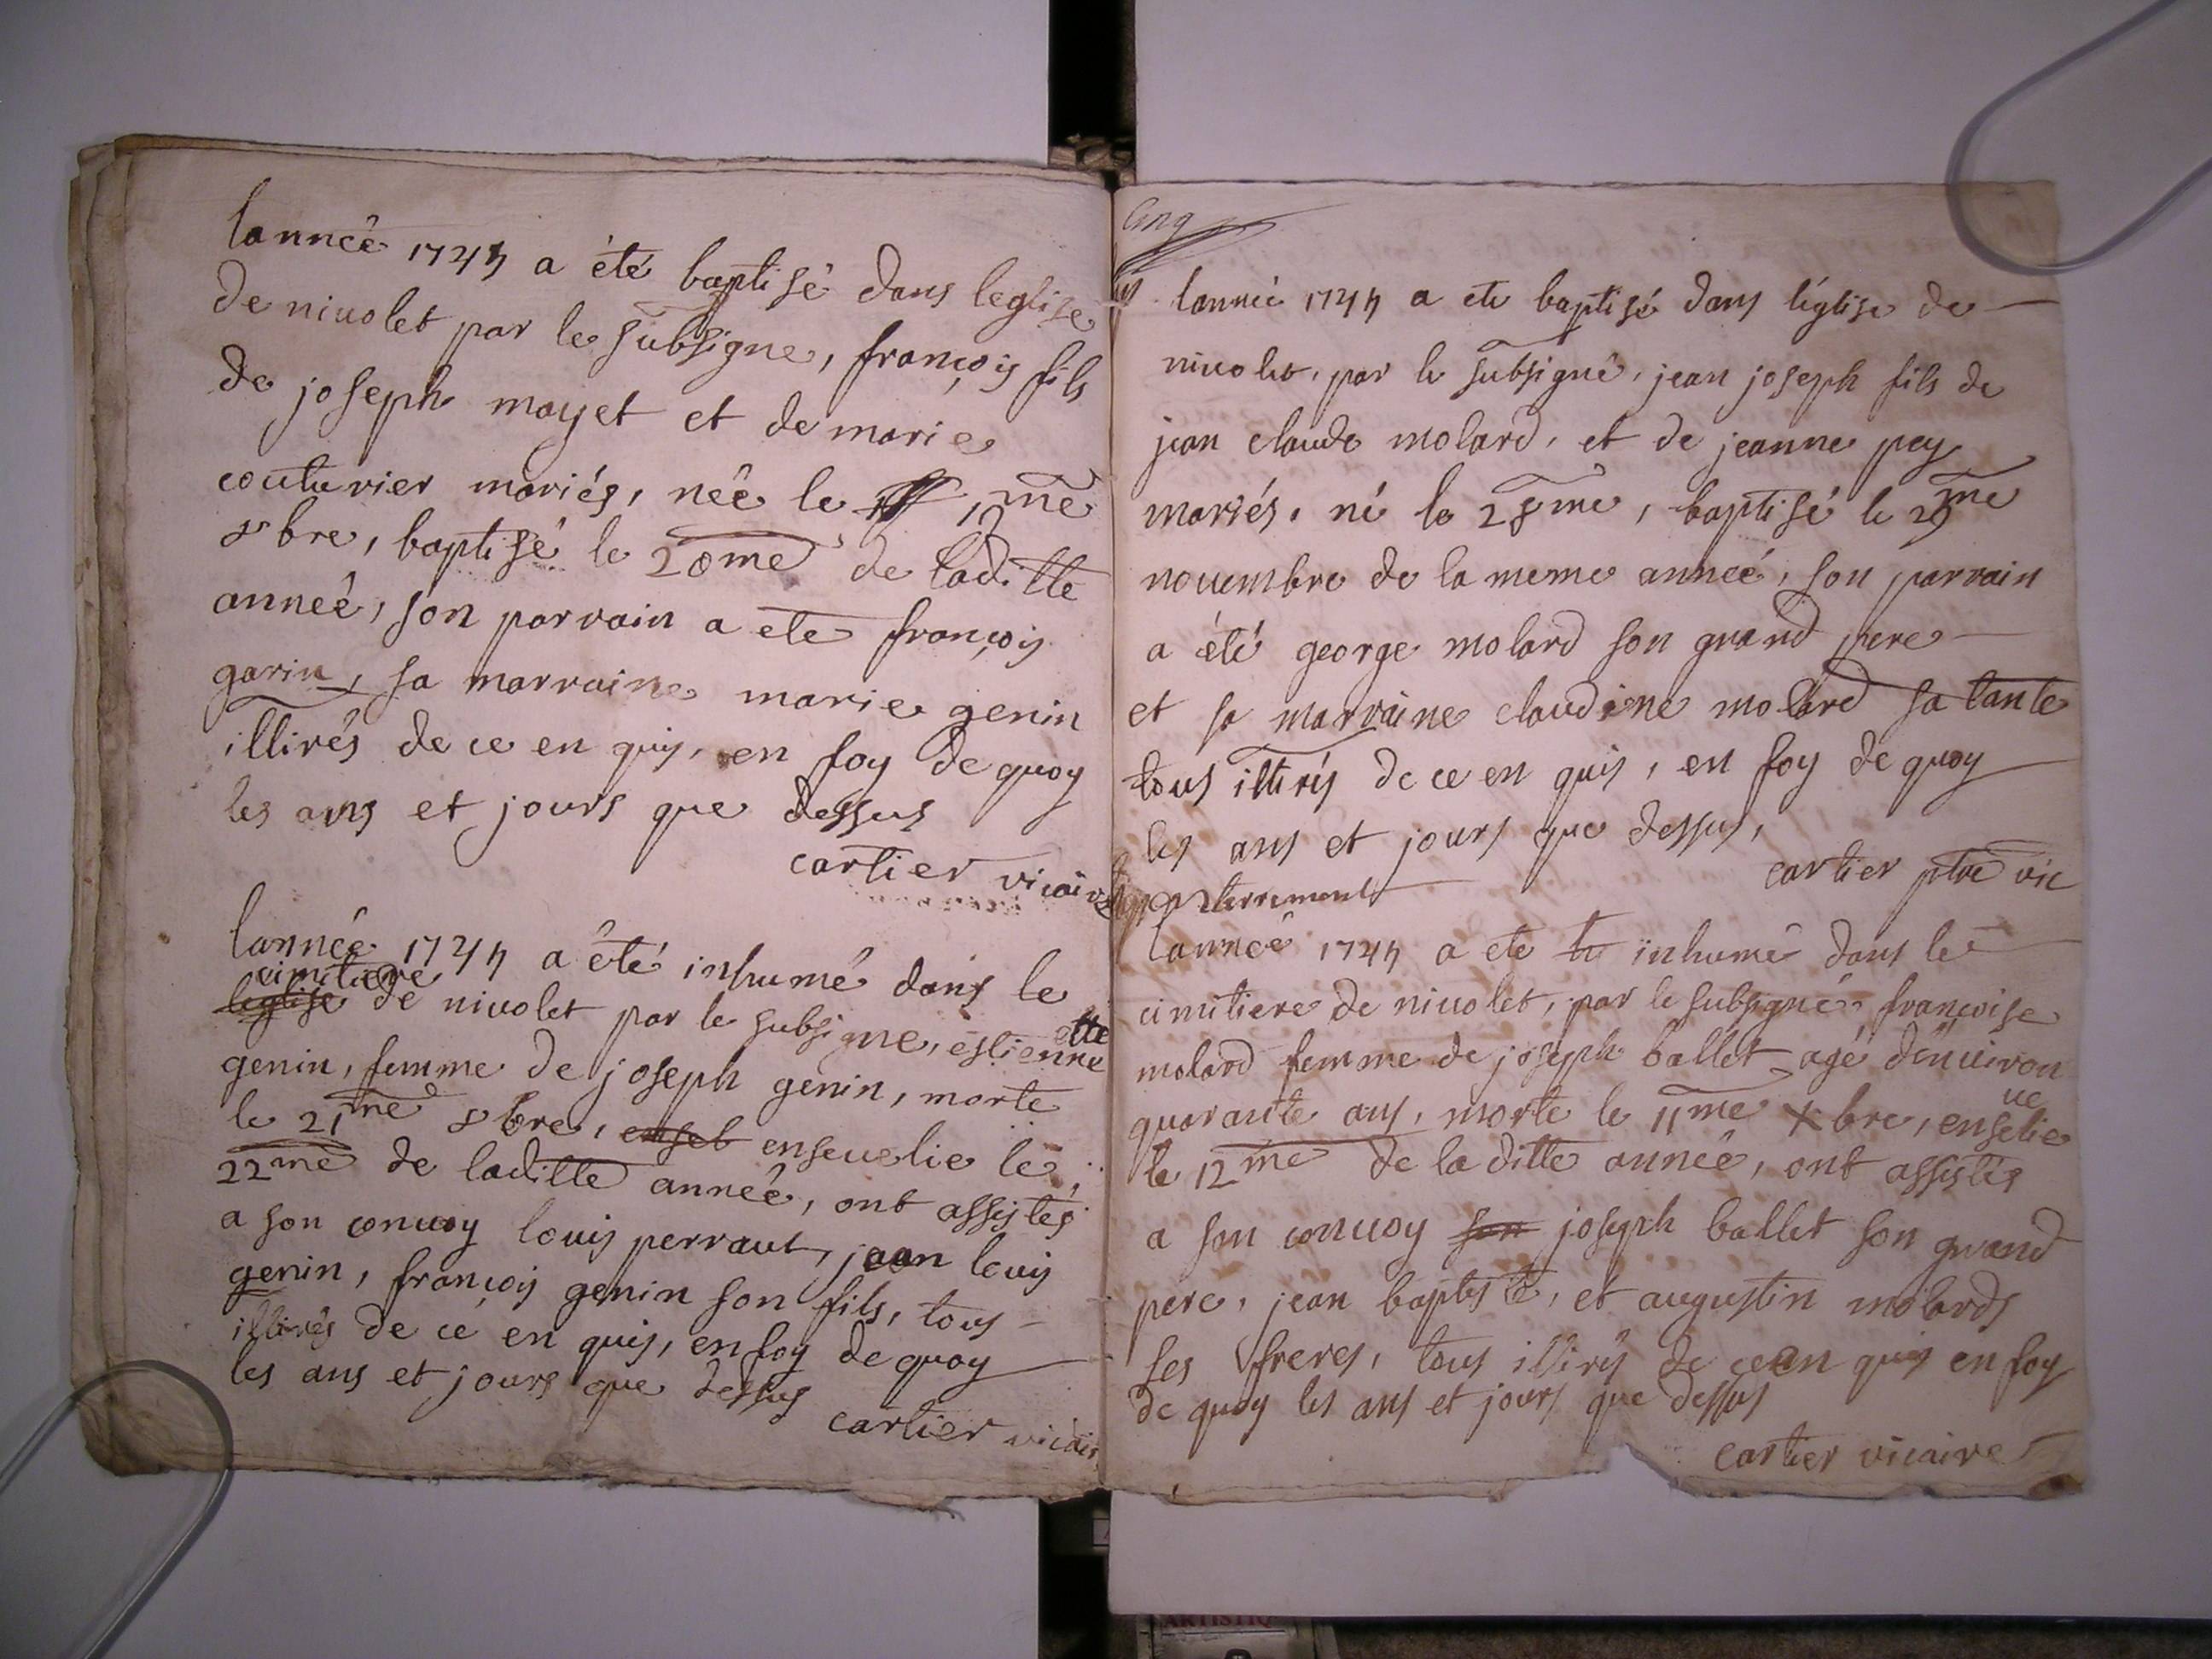 lanneê 1744 a êté baptisé dans leglise
de nivolet par le subsigne, françois fils
de joseph mayet et de marie
couturier mariés, neê le 19me
8bre, baptisé le 20me de laditte
anneê, son parrain a ete françois
garin, sa marraine marie genin
illirés de ce en quis, en foy de quoy
les ans et jours que dessus
cartier vicaire
lanneê 1744 a êté inhumé dans le
cimitiere
leglise de nivolet par le subsigne, estiennette
genin, femme de joseph genin, morte
le 21me 8bre, ensel enseuelie le
22me de laditte anneê, ont assistés
a son convoy louis perraut, jean louis
genin, françois genin son fils, tous
illirés de ce en quis, en foy de quoy
les ans et jours que dessus
cartier vicaire
Cinq
lanneé 1744 a ete baptisé dans l'église de
nivolet, par le subsigné, jean joseph fils de
jean claude molard, et de jeanne pey
mariés, né le 28me, baptisé le 29me
novembre de la meme anneé, son parrain
a été george molard son grand pere
et sa marraine claudine molard sa tante
tous illirés de ce en quis, en foy de quoy
les ans et jours que dessus,
cartier ptre vic
enterrement
lanneê 1744 a ete inhumé dans le
cimitiere de nivolet, par le subsigné, françoise
molard femme de joseph ballet agé denuiron
quarante ans, morte le 11me Xbre, enseuelie
le 12me de la ditte anneê, ont assistés
a son convoy son joseph ballet son grand
pere, jean baptiste, et augustin molards
ses freres, tous illirés de ce en quis en foy
de quoy les ans et jours que dessus
cartier vicaire